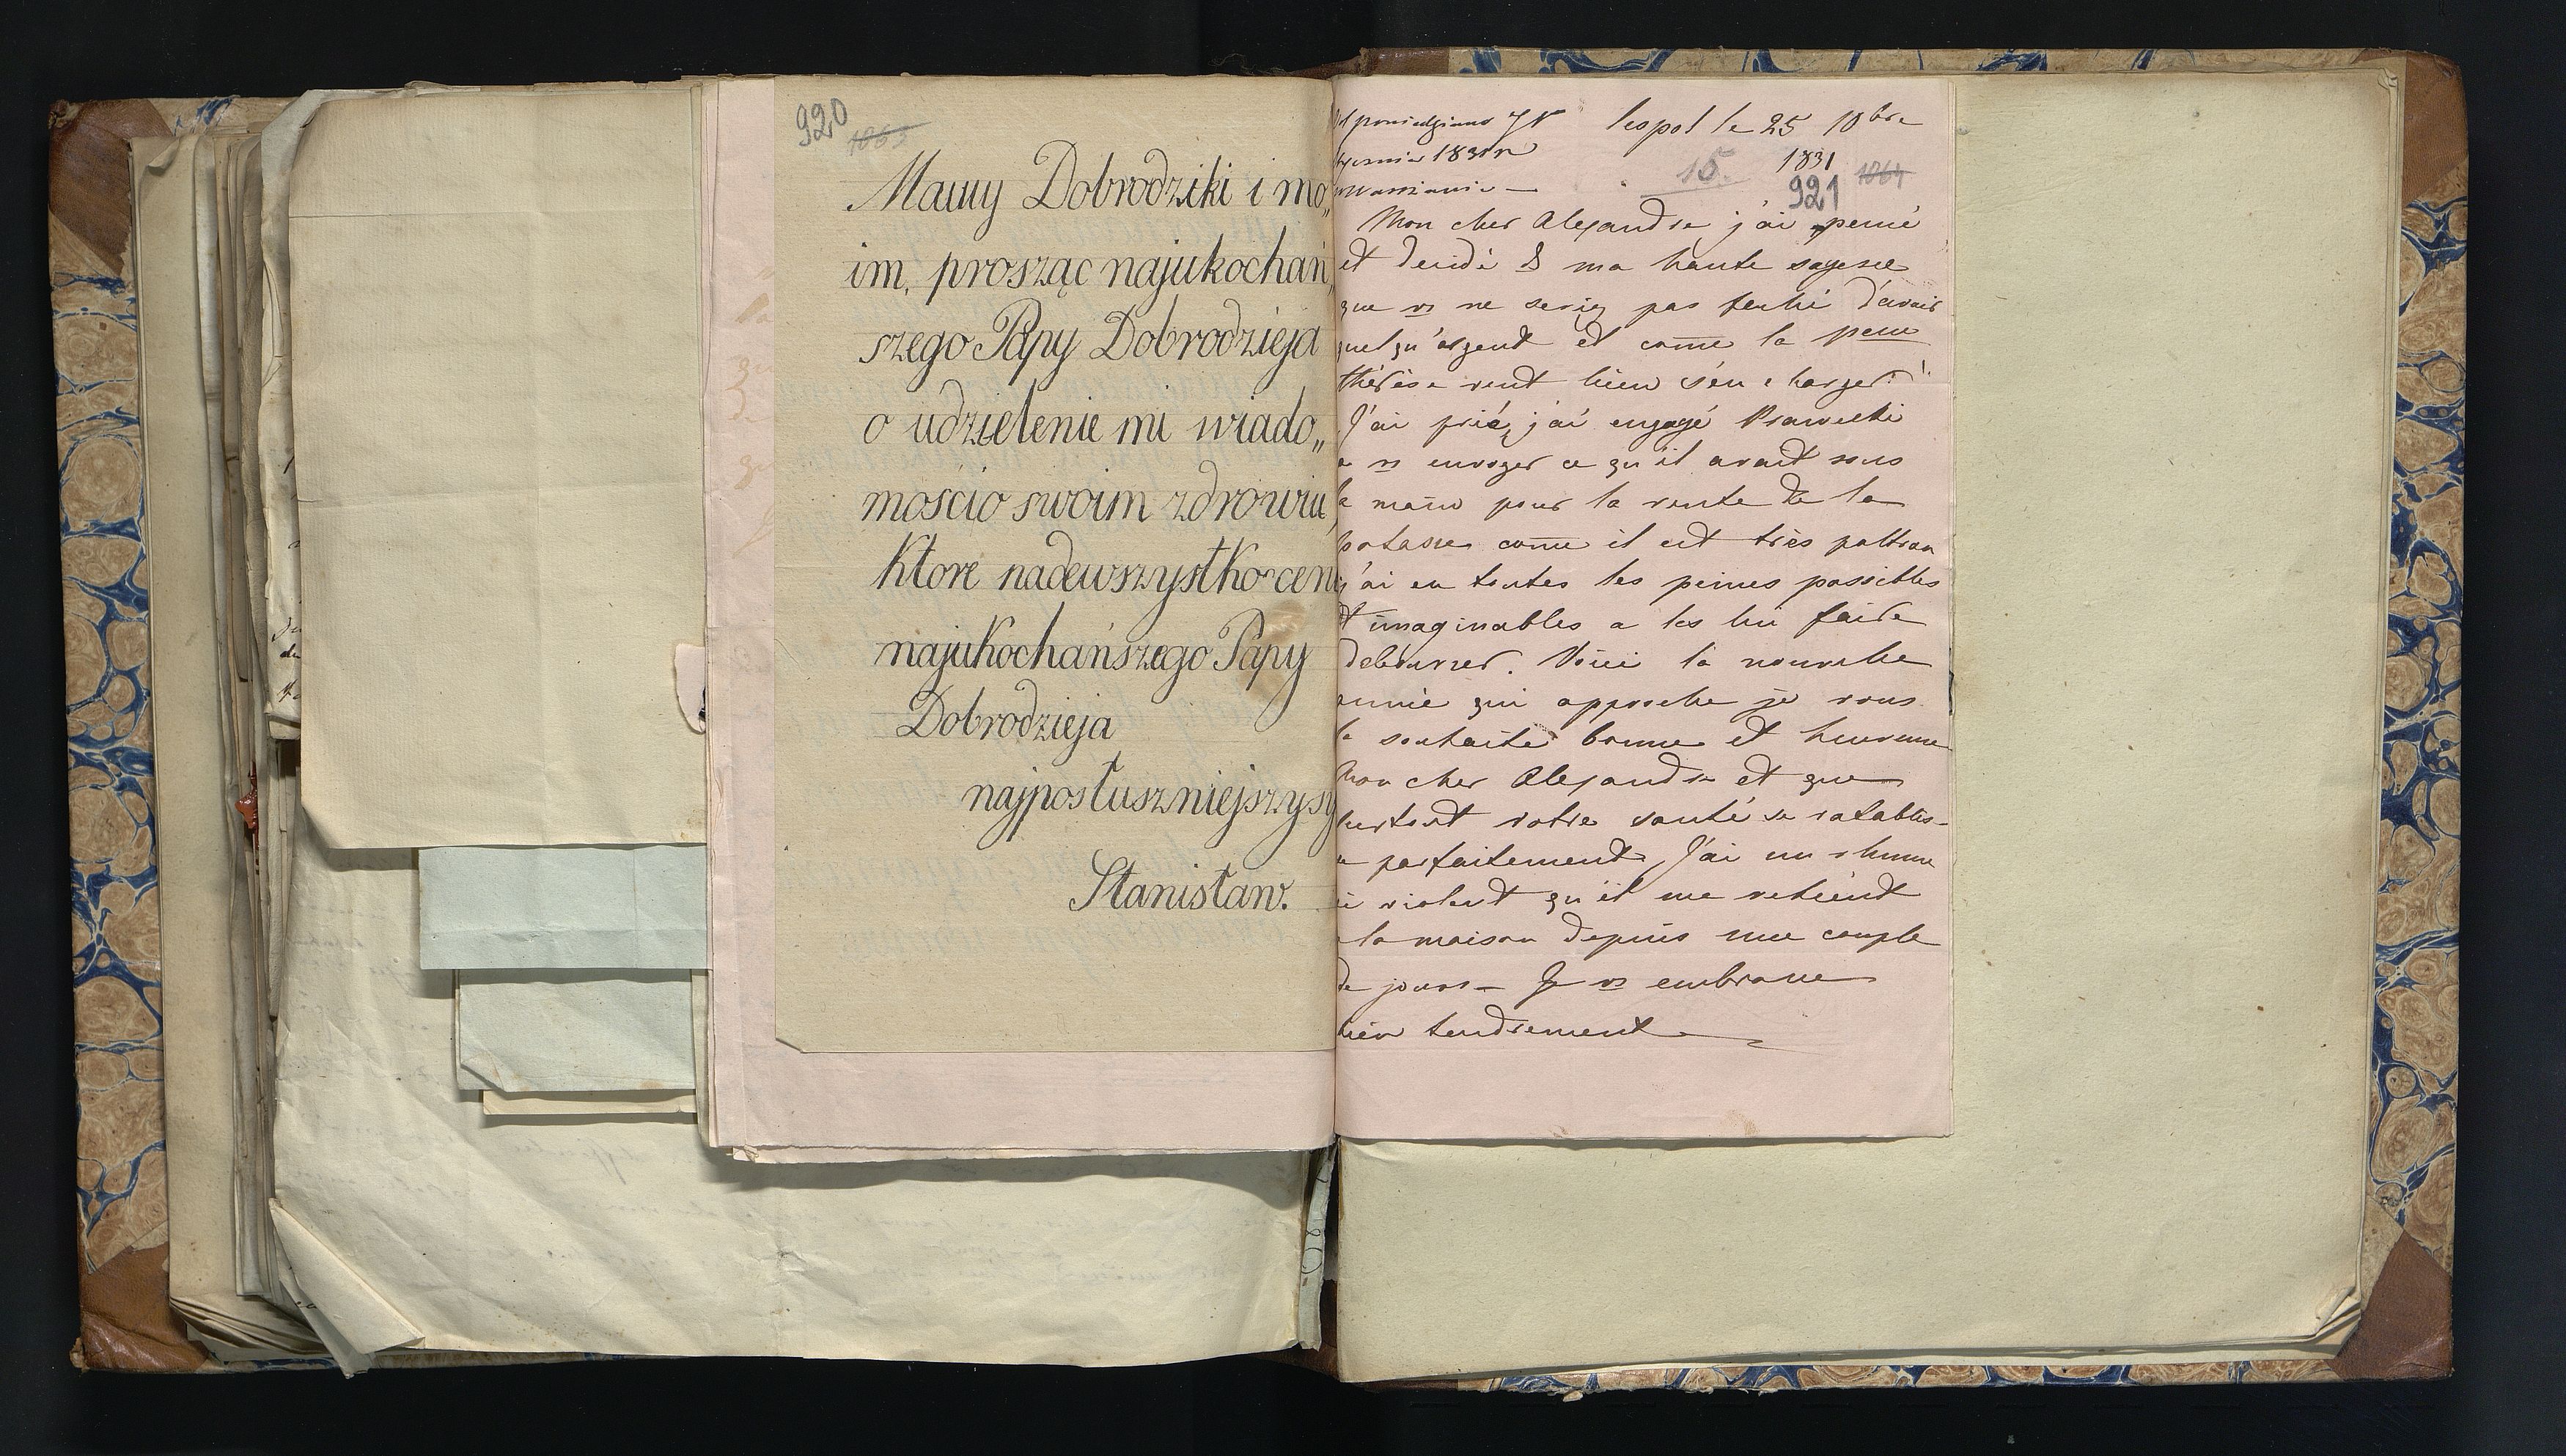 920
1063
Mamy Dobrodziki i mo„
im, prosząc najukochań„
szego Papy Dobrodzieja
o udzielenie mi wiado„
mościo swoim zdrowiu,
które nadewszystko ceni
najukochańszego Papy
Dobrodzieja
najposłuszniejszy sy
Stanisław.
Leopol le 25 10bre
1831
15.
921 1064
Mon cher Alexandre j'ai pensé
et decidé ds ma haute sagesse
que vs ne seriez pas faché d'avoir
quelqu'argent et come la
thérèse veut bien s'en charger
J'ai prié, j'ai engagé
a vs envoyer ce qu'il avait sous
la main pour la vente de la
potasse come il est très poltron
j'ai eu toutes les peines possibles
et imaginables a les lui faire
debourser. Voici la nouvelle
année qui approche je vous
la souhaite bonne et heureuse
Mon cher Alexandre et que
surtout votre santé se rétablis-
se parfaitement J'ai un rhume
si violent qu'il me retient
a la maison depuis une couple
de jours – Je vs embrasse
bien tendrement